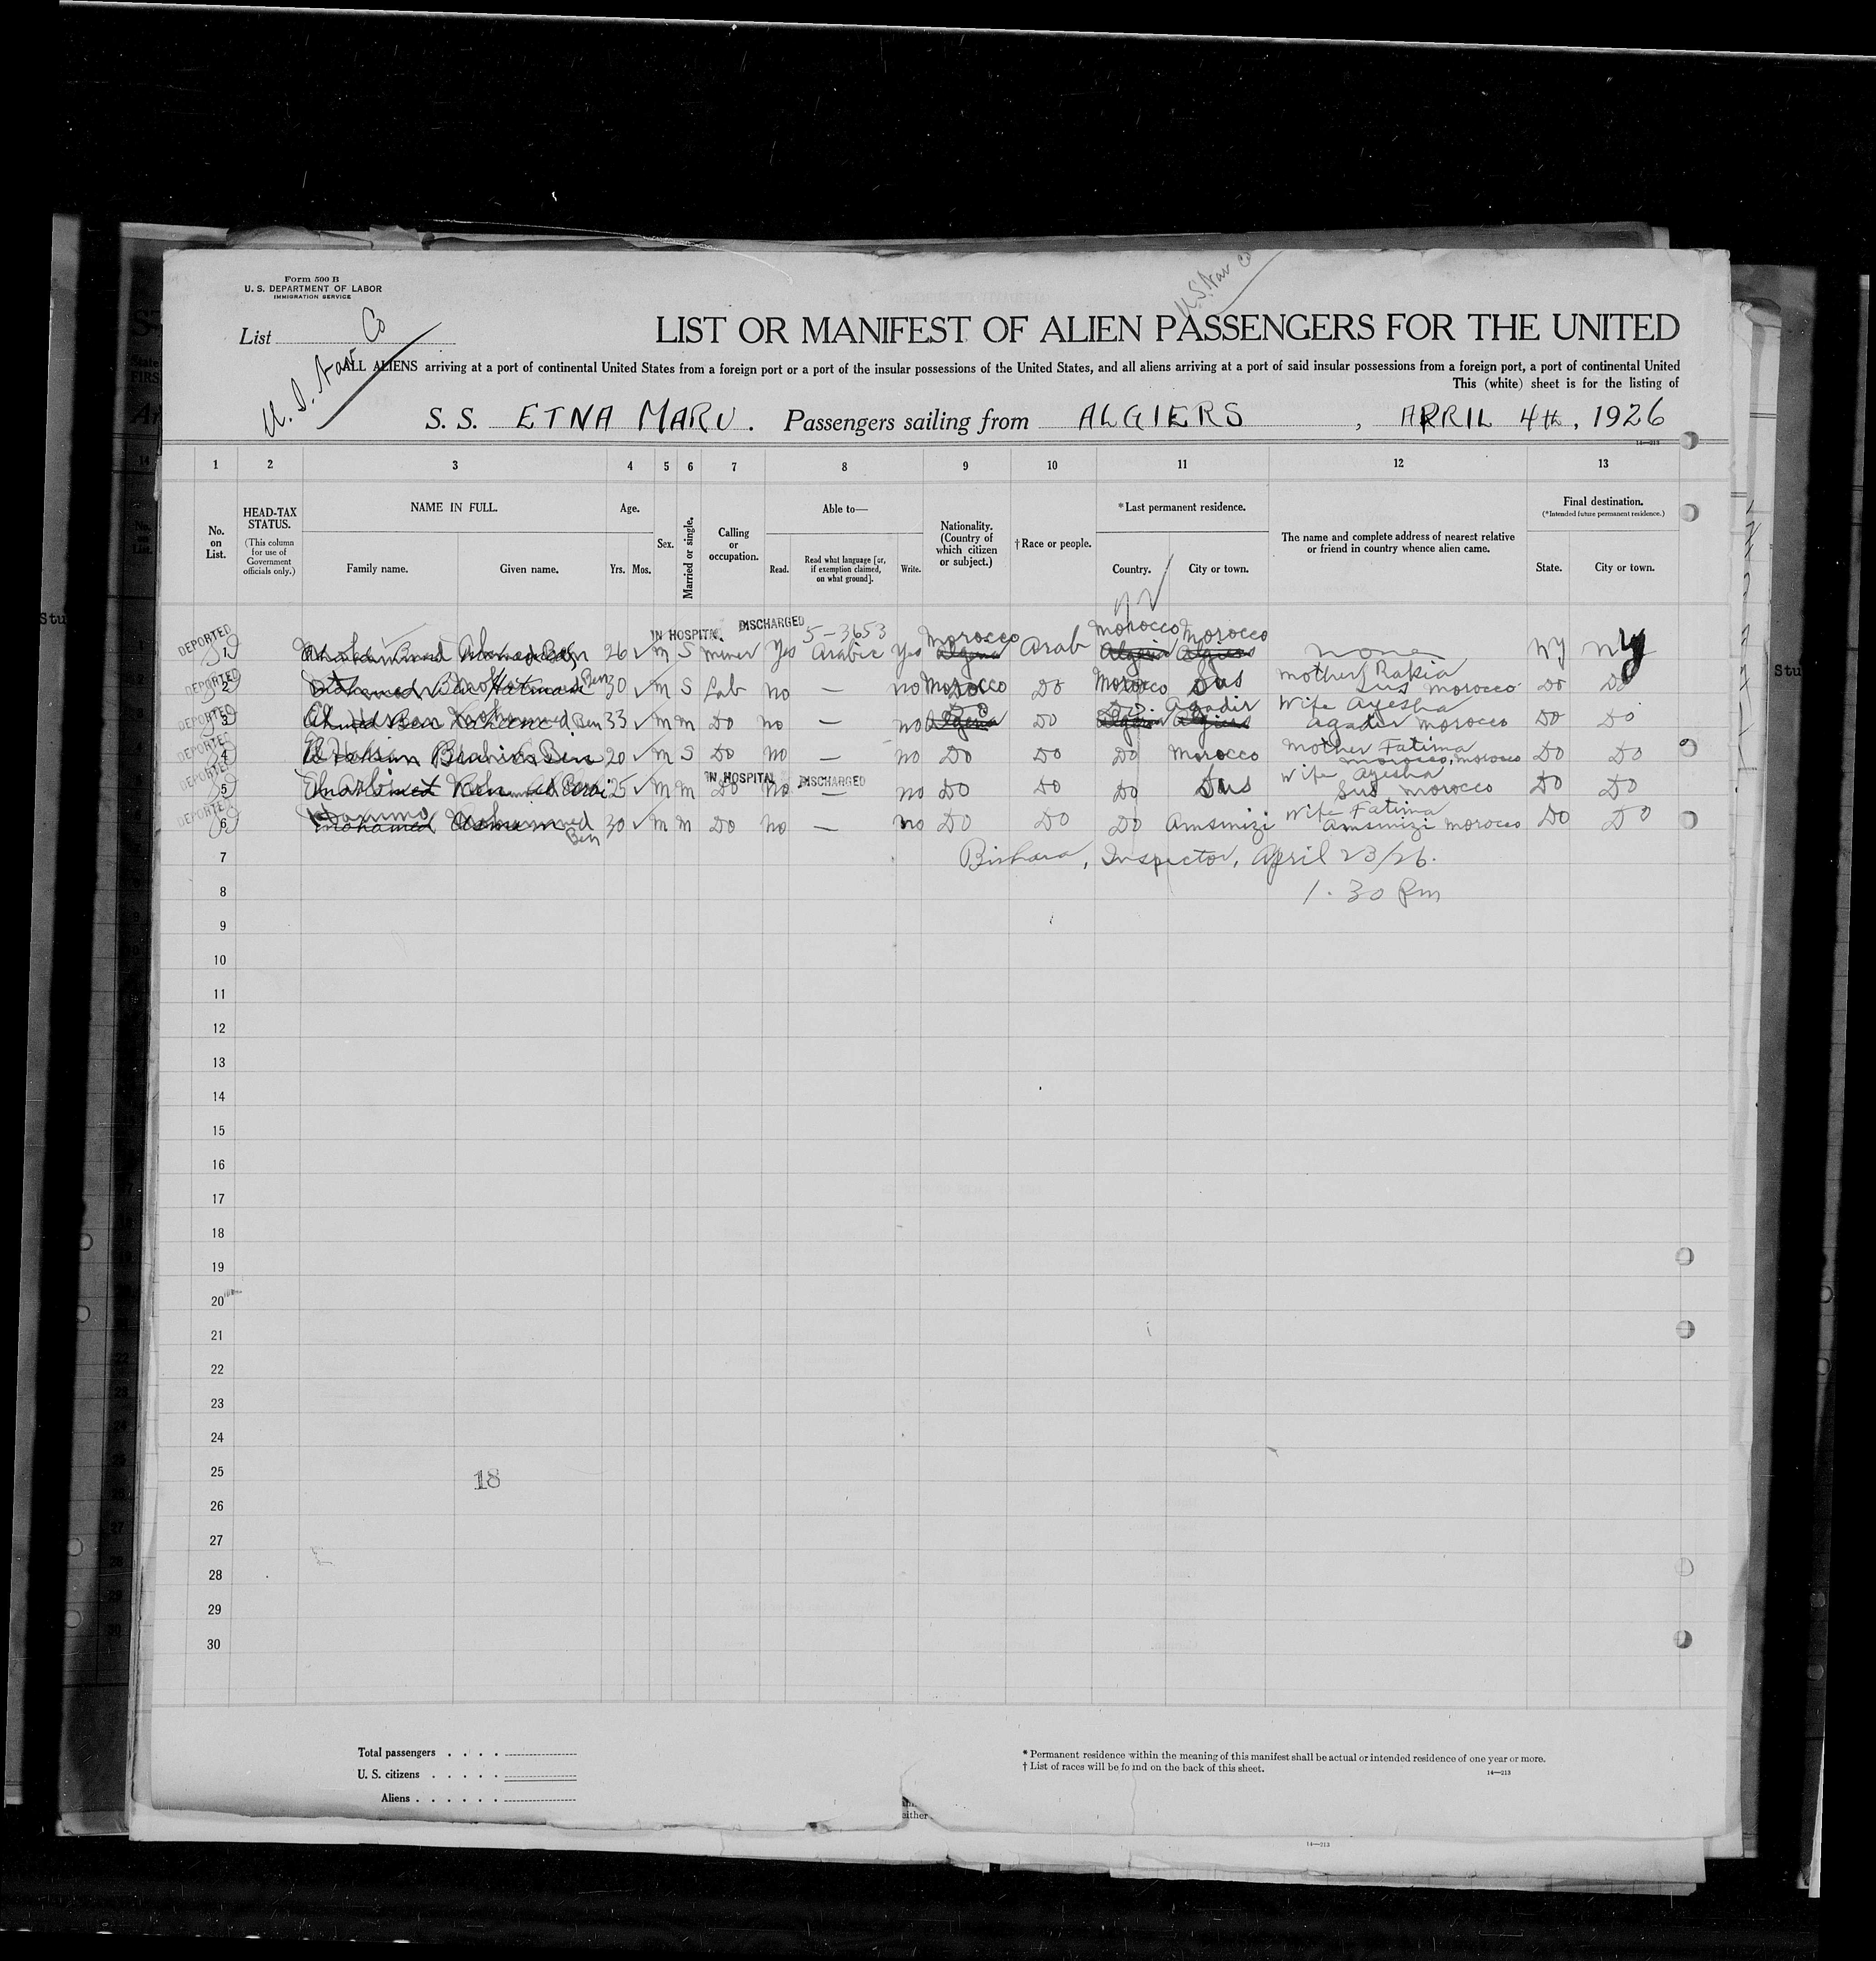 Form 500 B
U. S. DEPARTMENT OF LABOR
IMMIGRATION SERVICE
U.S. Nav Co
List
U. S. Nav Co
LIST OR MANIFEST OF ALIEN PASSENGERS FOR THE UNITED
ALL ALIENS arriving at a port of continental United States from a foreign port or a port of the insular possessions of the United States, and all aliens arriving at a port of said insular possessions from a foreign port, a port of continental United
This (white) sheet is for the listing of
S. S. ETNA MARU. Passengers sailing from ALGIERS, APRIL 4th, 1926
14—213
1 2 3 4 5 6 7 8 9 10 11 12 13
No. on List.
HEAD-TAX STATUS.
(This column for use of Government officials only.)
NAME IN FULL.
Family name. Given name.
Age.
Yrs. Mos.
Sex.
Married or single.
Calling or occupation.
Able to—
Read. Read what language [or, if exemption claimed, on what ground]. Write.
Nationality. (Country of which citizen or subject.)
†Race or people.
*Last permanent residence.
Country. City or town.
The name and complete address of nearest relative or friend in country whence alien came.
Final destination.
(*Intended future permanent residence.)
State. City or town.
IN HOSPITAL DISCHARGED 5-3653
DEPORTED 1 26 m S miner Yes Arabic Yes Morocco Algeria Arab Morocco Algeria Morocco Algiers none NY NY
DEPORTED 2 Ben 30 m S Lab no — no Morocco Do Morocco Sus mother Rakia Sus Morocco Do Do
DEPORTED 3 Ben 33 m m Do no — no Do Algeria Do Do Algeria Agadir Algiers Wife Ayesha Agadir Morocco Do Do
DEPORTED 4 Brahim Ben 20 m S Do no — no Do Do Do Morocco mother Fatima Morocco, Morocco Do Do
IN HOSPITAL DISCHARGED
DEPORTED 5 25 m m Do no — no Do Do Do Sus Wife Ayesha Sus Morocco Do Do
DEPORTED 6 Mohamed Ben 30 m m Do no — no Do Do Do Amsmizi Wife Fatima Amsmizi Morocco Do Do
7 Bishara, Inspector, April 23/26.
8 1.30 Pm
9
10
11
12
13
14
15
16
17
18
19
20
21
22
23
24
25
18
26
27
28
29
30
Total passengers . . . .
U. S. citizens . . . . .
Aliens . . . . . .
* Permanent residence within the meaning of this manifest shall be actual or intended residence of one year or more.
† List of races will be found on the back of this sheet.
14—213
either
14—213